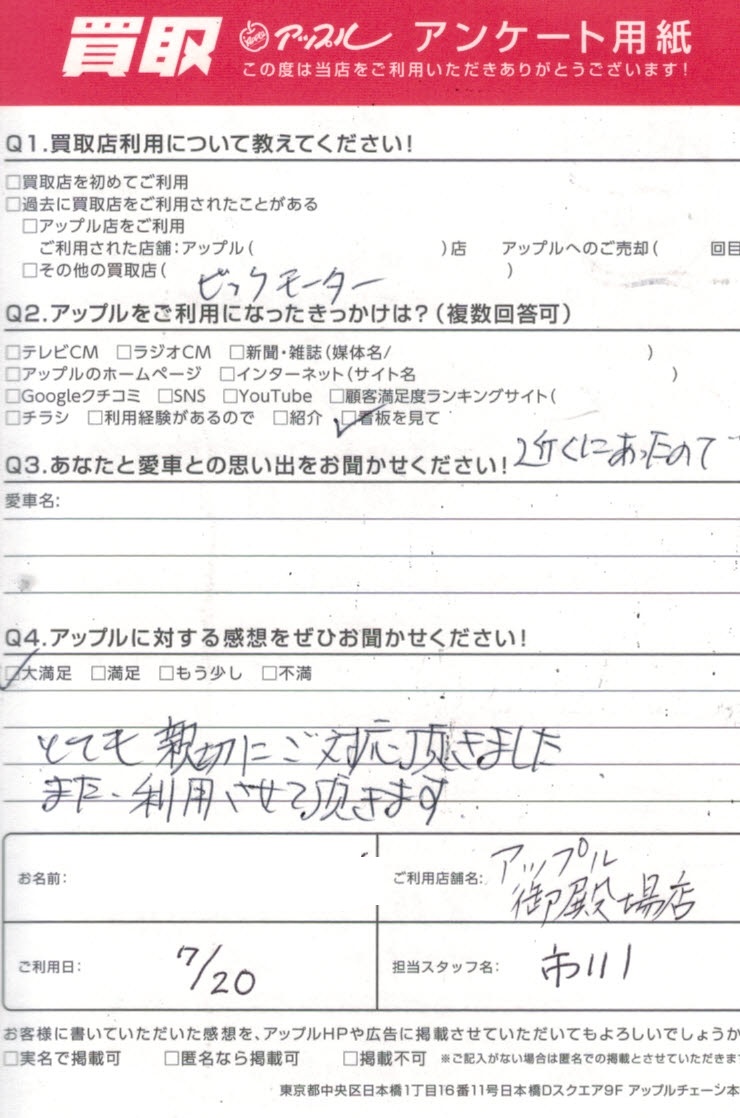 買取 アップル アンケート用紙
この度は当店をご利用いただきありがとうございます!
Q1.買取店利用について教えてください!
□買取店を初めてご利用
□過去に買取店をご利用されたことがある
□アップル店をご利用
ご利用された店舗:アップル( )店 アップルへのご売却( 回目
□その他の買取店( ビックモーター )
Q2.アップルをご利用になったきっかけは?(複数回答可)
□テレビCM □ラジオCM □新聞・雑誌(媒体名/ )
□アップルのホームページ □インターネット(サイト名 )
□Googleクチコミ □SNS □YouTube □顧客満足度ランキングサイト(
□チラシ □利用経験があるので □紹介 ☑看板を見て
近くにあったので
Q3.あなたと愛車との思い出をお聞かせください!
愛車名:
Q4.アップルに対する感想をぜひお聞かせください!
☑大満足 □満足 □もう少し □不満
とても親切にご対応頂きました
また、利用させて頂きます
お名前: ご利用店舗名: アップル
御殿場店
ご利用日: 7/20 担当スタッフ名: 市川
お客様に書いていただいた感想を、アップルHPや広告に掲載させていただいてもよろしいでしょうか
□実名で掲載可 □匿名なら掲載可 □掲載不可 ※ご記入がない場合は匿名での掲載とさせていただきます
東京都中央区日本橋1丁目16番11号日本橋Dスクエア9F アップルチェーン本